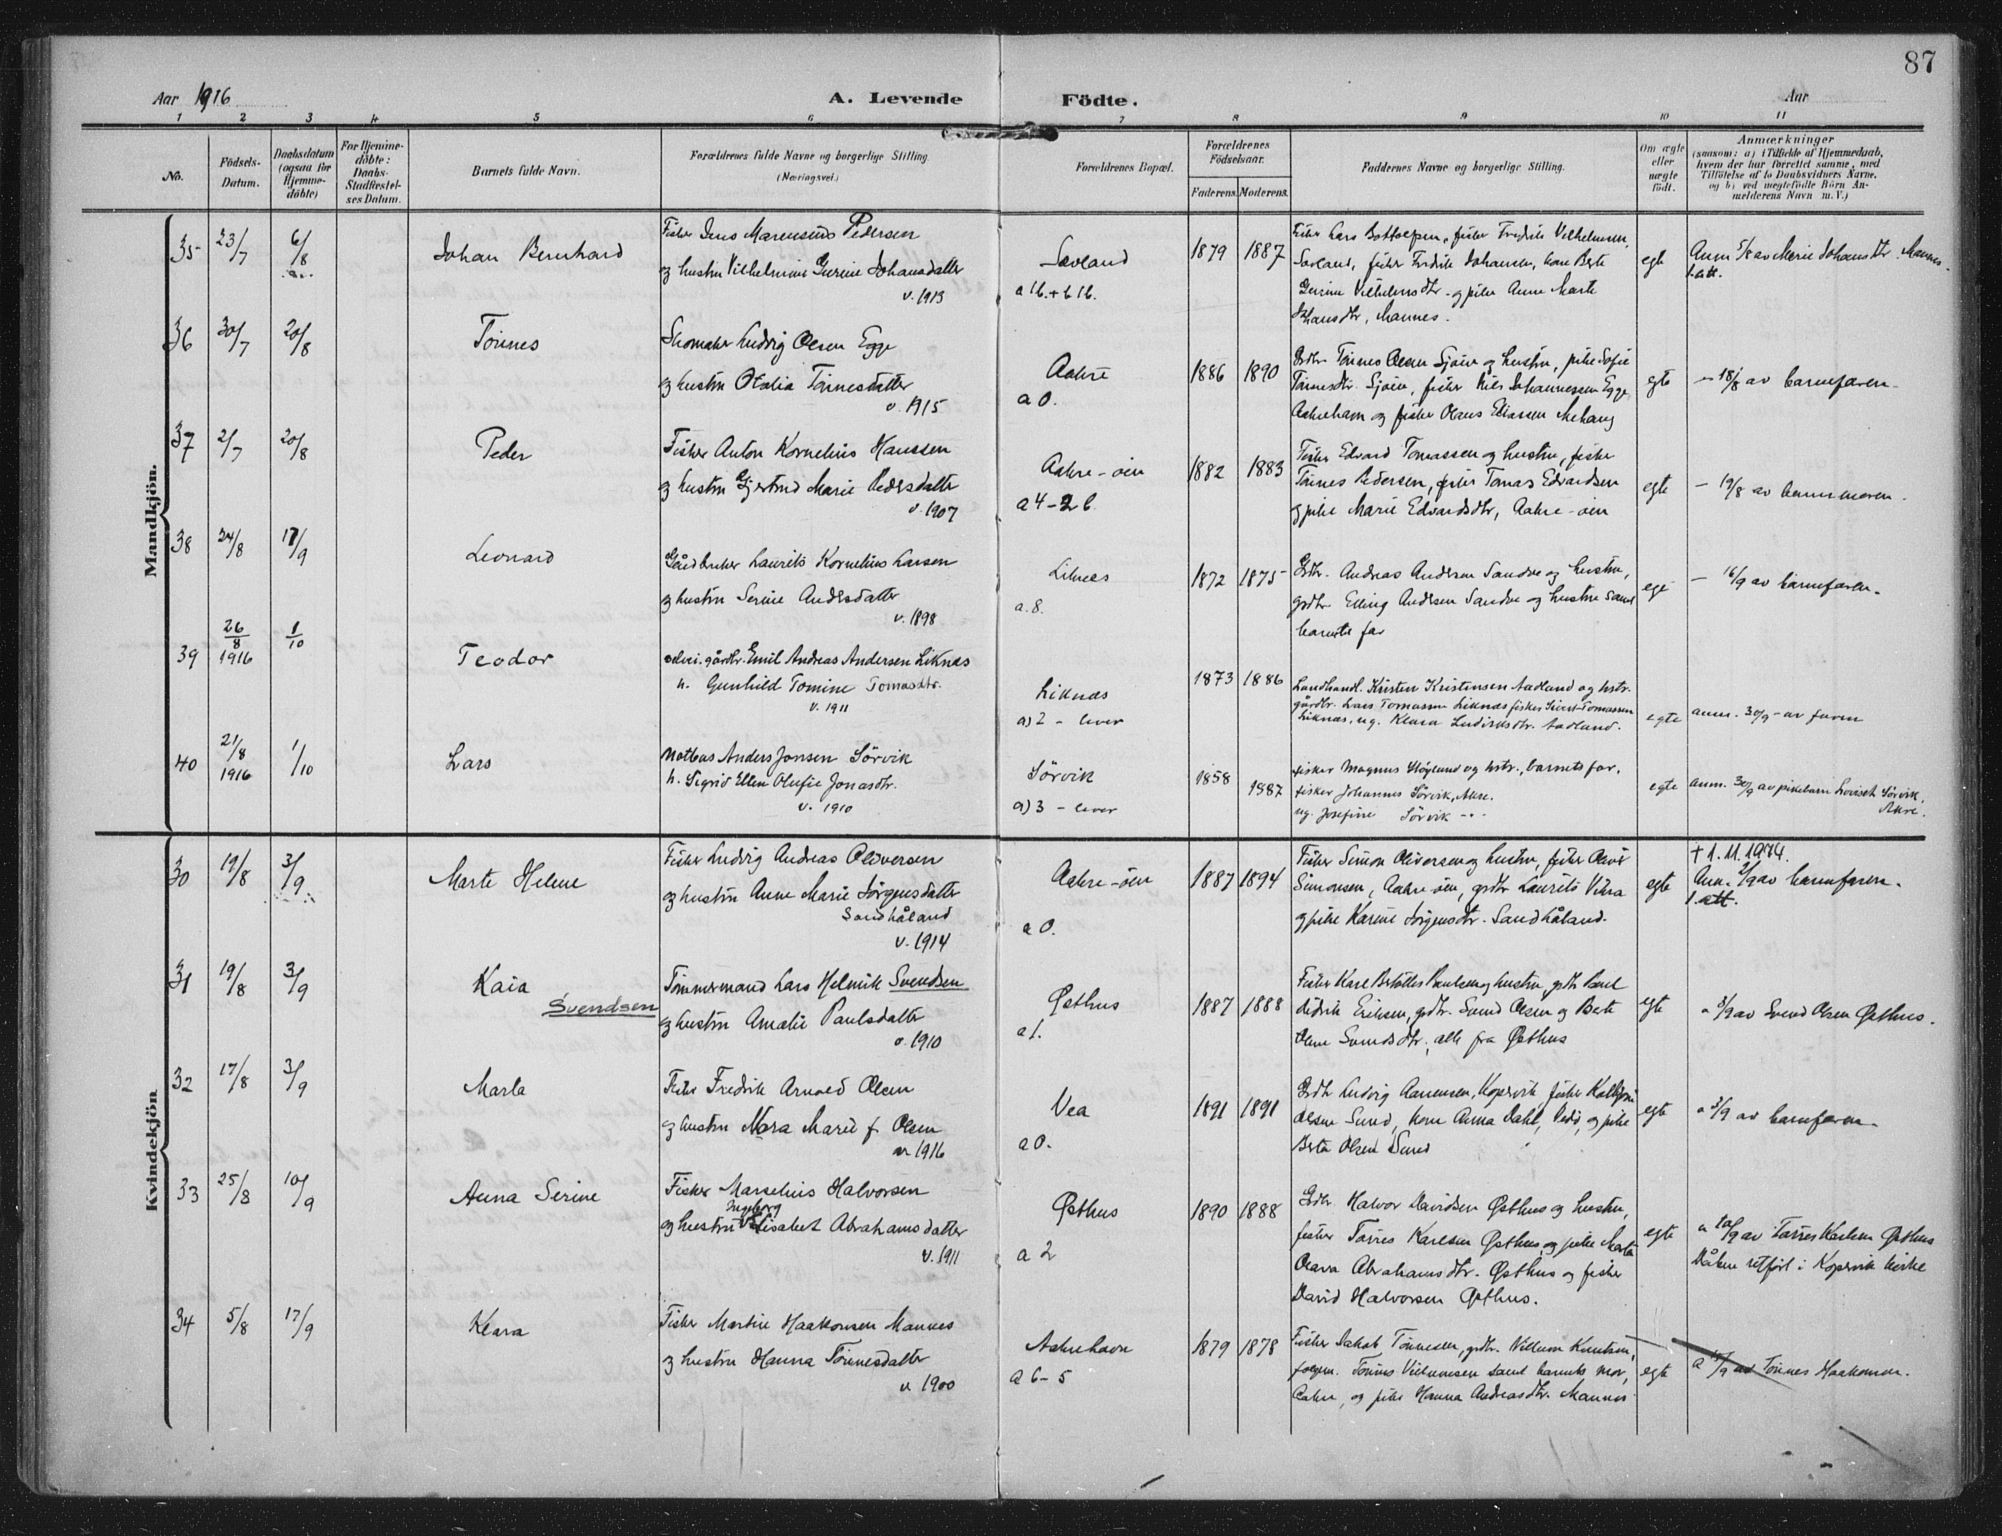 87
Aar 1916
A. Levende Födte.
Aar
1 2 3 4 5 6 7 8 9 10 11
No.
Födsels-Datum.
Daabsdatum (ogsaa for Hjemmedöbte)
For Hjemmedöbte: Daabs-Stadfæstelses Datum.
Barnets fulde Navn.
Forældrenes fulde Navne og borgerlige Stilling.
(Næringsvei.)
Forældrenes Bopæl.
Forældrenes Födselsaar.
Faderens. Moderens.
Faddernes Navne og borgerlige Stilling.
Om ægte eller uægte födt.
Anmærkninger
(saasom: a) i Tilfælde af Hjemmedaab,
hvem der har forrettet samme, med
Tilföielse af to Daabsvidners Navne,
og b) ved uegtefödte Börn Anmelderens Navn m.V.)
Mandkjön.
35 23/7 6/8 Johan Bernhard
Fisker Jens Marensius Pedersen
og hustru Vilhelmine Gurine Johansdatter
v. 1913
Sævland
1879 1887
Fisker Lars Bottolfsen, fisker Fredrik Vilhelmsen,
Sævland, fisker Fredrik Johansen, kone Berte
Gurine Vilhelmsdtr. og pike Anne Marte
Johansdtr, Mannes.
egte
Anm 5/8 av Marie Johansdtr. Mannes.
1. att.
36 30/7 20/8 Tönnes
Skomaker Ludvig Olsen Egge
og hustru Otalia Tönnesdatter
v. 1915
Aakre
a 0.
1886 1890
Grdbr. Tönnes Olsen Sjöen og hustru, pike Sofie
Tönnesdtr Sjöen, fisker Nils Johannessen Egge,
Aakreham og fisker Olaus Eliassen Mehaug
egte
— 18/8 av barnefaren.
37 2/7 20/8 Peder
Fisker Anton Kornelius Hanssen
og hustru Gjertrud Marie Pedersdatter
v. 1907
Aakre-öen
a 4 - 2 b.
1882 1883
Fisker Edvard Tomassen og hustru, fisker
Tönnes Pedersen, fisker Tomas Edvardsen
og pike Marie Edvardsdtr, Aakre-öen
egte
— 19/8 av barnemoren.
38 24/8 17/9 Leonard
Gårdbruker Laurits Kornelius Larsen
og hustru Serine Andersdatter
v. 1898
Liknes
a. 8.
1872 1875
Grdbr. Andreas Andersen Sandve og hustru,
grdbr Elling Andersen Sandve og hustru samt
barnets far
— 16/9 av barnefaren.
39 26/8 1916 1/10 Teodor
selvei. gårdbr. Emil Andreas Andersen Liknes
h. Gunhild Tomine Tomasdtr.
v. 1911
Liknes
a) 2 - lever
1873 1886
Landhandl. Kristen Kristensen Aadland og hstr.
gårdbr. Lars Tomassen Liknes fisker Sivert Tomassen
Liknes, ug. Klara Endiksdtr. Aadland.
egte
anm. 30/9 - av faren
40 21/8 1916 1/10 Lars
Notbas Anders Jonsen Sörvik
h. Sigrid Ellen Olufie Jonasdtr.
v. 1910
Sörvik
a) 3 - lever
1858 1887
fisker Magnus Höglund og hstr., barnets far,
fisker Johannes Sörvik, Akre.
ug. Josefine Sörvik - "
egte
anm. 30/9 av pikebarn Loviset Sörvik, Akre.
Kvindekjön
30 19/8 3/9 Marte Helene
Fisker Ludvig Andreas Oliversen
og hustru Anne Marie Jörgensdatter
Sandhåland
v. 1914
Aakre-öen
a 0.
1887 1894
Fisker Simon Oliversen og hustru, fisker Oliver
Simonsen, Aakre-öen, grdbr Laurits Vikra
og pike Karine Jörgensdtr. Sandhåland.
egte
+ 1.11.1974.
Anm. 2/9 av barnefaren.
1. att.
31 19/8 3/9 Kaia
Svendsen
Tömmermand Lars Helmik Svendsen
og hustru Amalie Paulsdatter
v. 1910
Østhus
a 1.
1887 1888
Fisker Karl Bertottes Paulsen og hustru, grdbr Paul
Didrik Eriksen, grdbr. Svend Olsen og Berte
Oline Svendsdtr, alle fra Østhus
egte
" 3/9 av Svend Olsen Østhus.
32 17/8 3/9 Marta
Fisker Fredrik Arnold Olsen
og hustru Nora Marie f. Olsen
v. 1916
Vea
a 0.
1891 1891
Grdbr Ludvig Aanensen, Kopervik fisker
Olsen Sund, kone Anna Dahl, Vedö, og pike
Berta Olsen Sund
egte
" 3/9 av barnefaren.
33 25/8 10/9 Anna Serine
Fisker Marselius Halvorsen
Ingeborg
og hustru Elisabet Abrahamsdatter
v. 1911
Østhus
a 2
1890 1888
Grdbr Halvor Davidsen Østhus og hustru,
fisker Torres Karlsen Østhus, og pike Marta
Olava Abrahamsdtr. Østhus og fisker
David Halvorsen Østhus.
egte
" 10/9 av Torres Karlsen Østhus
Dåben utført i Kopervik kirke
34 5/8 17/9 Klara
Fisker Martin Haakonsen Mannes
og hustru Hanna Tönnesdatter
v. 1900
Aakrehavn
a 6 - 5
1879 1878
Fisker Jakob Tönnesen, grdbr. Villum Knutsen,
Tönnes Villumsen samt barnets mor,
Aakre, og pike Hanna Andreasdtr. Mannes
egte
a 17/9 av Tönnes Haakonsen.